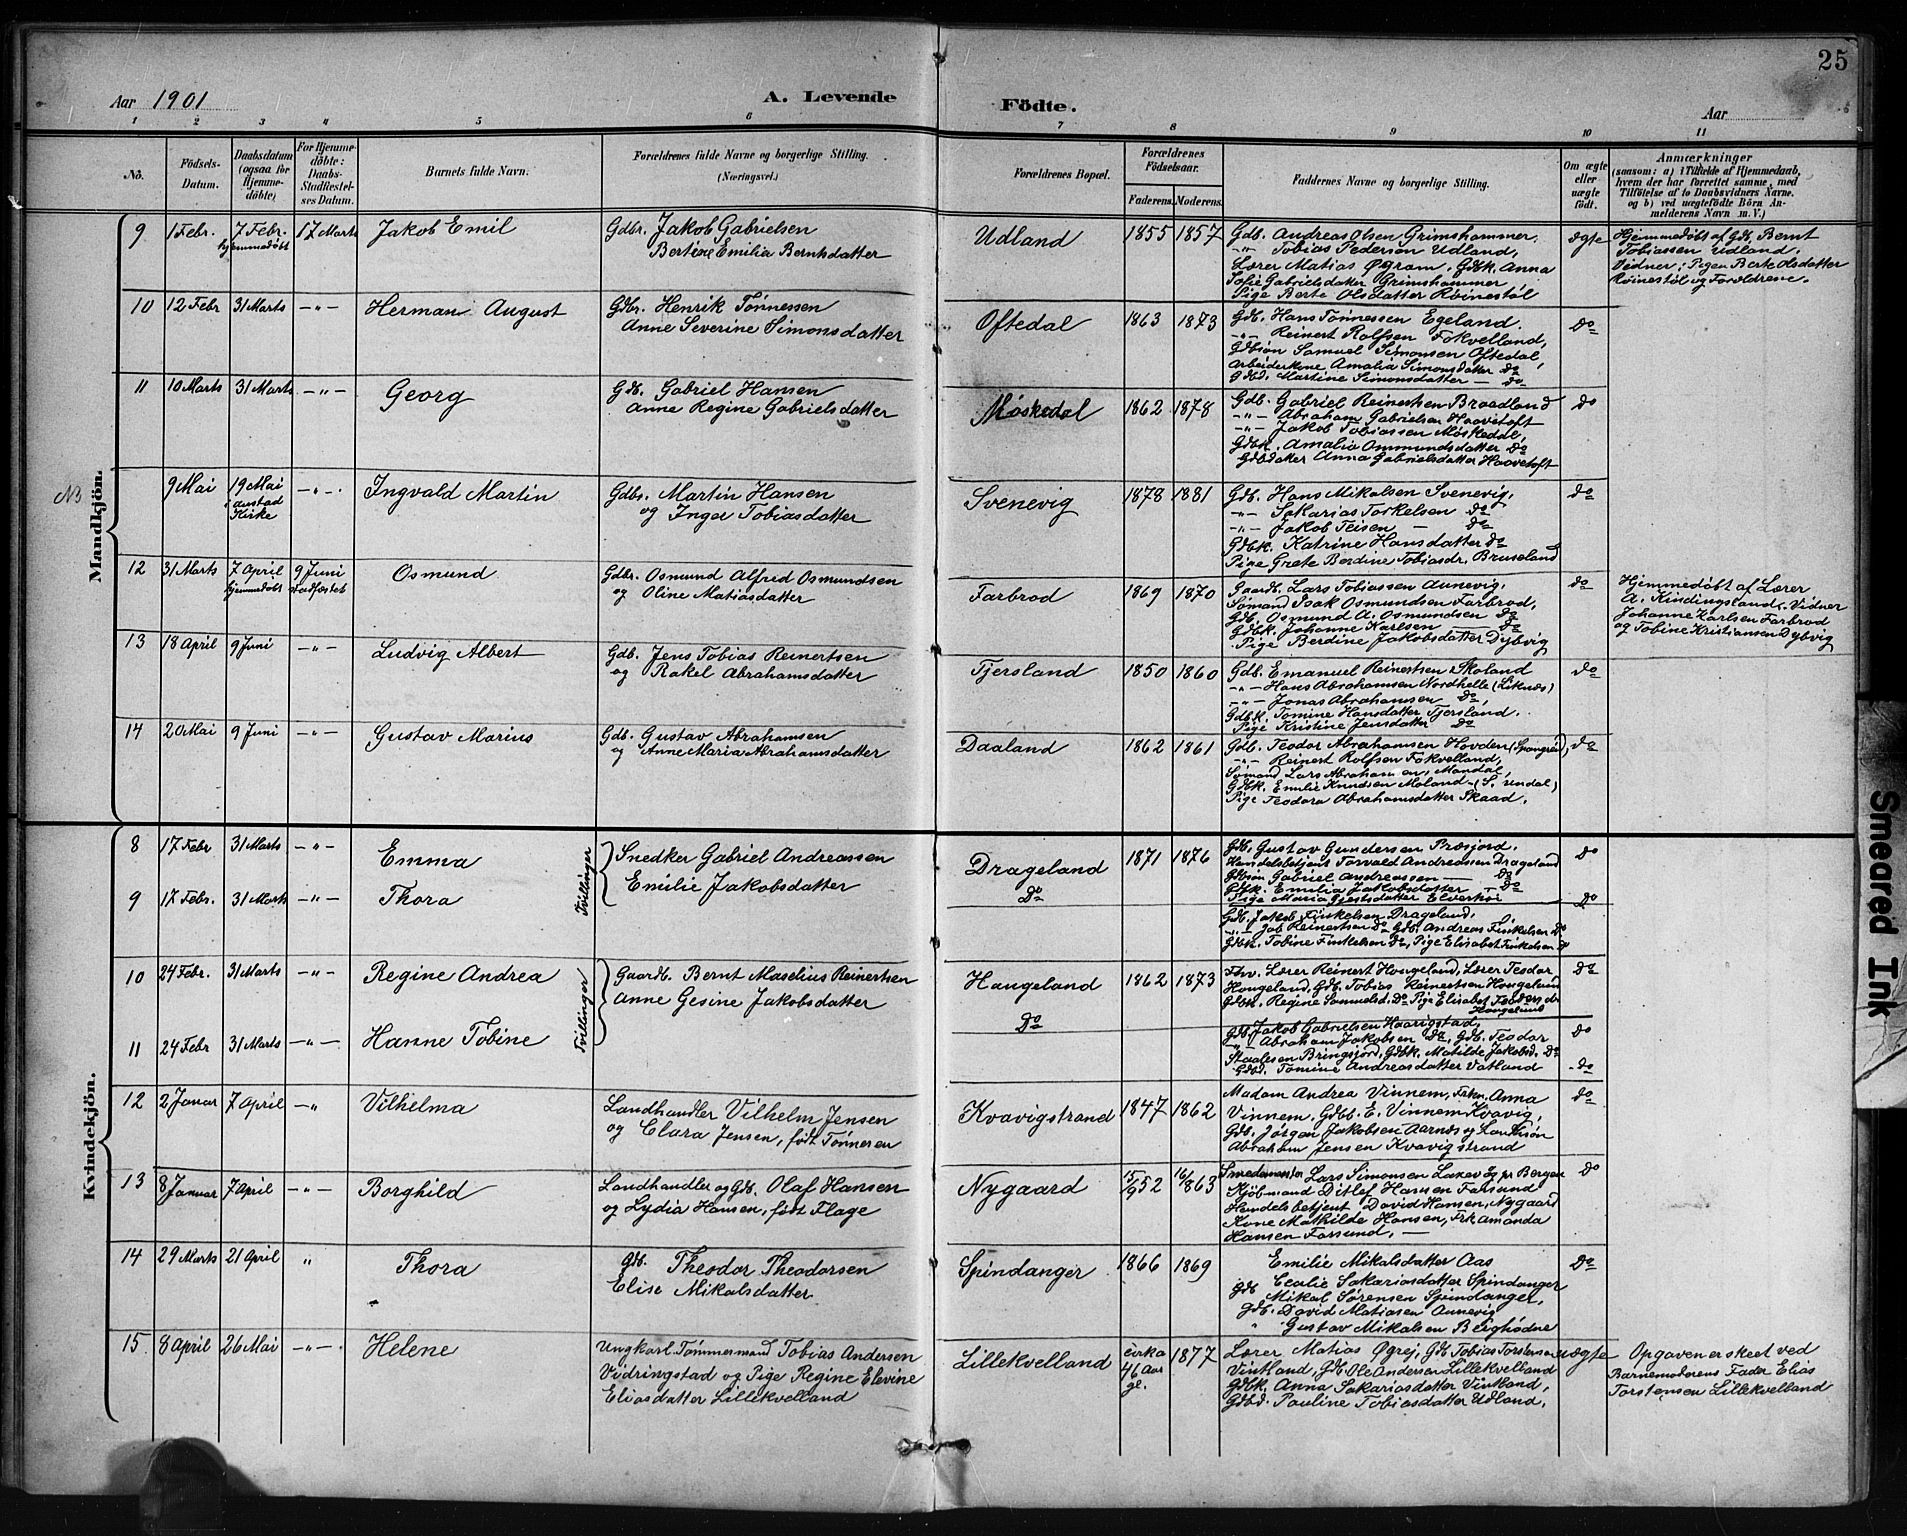 25
Aar 1901
A. Levende
Födte.
Aar
1 2 3 4 5 6 7 8 9 10 11
No.
Födsels-
Datum.
Daabsdatum
(ogsaa for
Hjemme-
döbte)
For Hjemme-
döbte:
Daabs-
Stadfæstel-
ses Datum.
Barnets fulde Navn.
Forældrenes fulde Navne og borgerlige Stilling.
(Næringsvei.)
Forældrenes Bopæl.
Forældrenes
Födselsaar.
Faderens. Moderens.
Faddernes Navne og borgerlige Stilling.
Om ægte
eller
uægte
födt.
Anmærkninger
(saasom: a) i Tilfælde af Hjemmedaab,
hvem der har forrettet samme, med
Tilföielse af to Daabsvidners Navne.
og b) ved uægtefödte Börn An-
melderens Navn m. V.)
Mandkjön.
9 1 Febr. 7 Febr. hjemmedøbt 17 Marts Jakob Emil
Gdbr. Jakob Gabrielsen
Bertine Emilia Berntsdatter
Udland 1855 1857
Gdb. Andreas Olsen Grimshammer,
-"- Tobias Pedersen Udland,
Lærer Matias Øgram, Gdbk. Anna
Sofie Gabrielsdatter Grimshammer
Pige Berte Olsdatter Røinestøl
ægte
Hjemmedøbt af Gdb. Bernt
Tobiassen Udland.
Vidner: Pigen Berte Olsdatter
Røinestøl og Forældrene.
10 12 Febr 31 Marts -"- Herman August
Gdbr. Henrik Tønnessen
Anne Severine Simonsdatter
Oftedal 1863 1873
Gdb. Hans Tønnessen Egeland.
-"- Reinert Rolfsen Fokvelland,
Gdbsøn Samuel Simonsen Oftedal,
Arbeiderkone Amalia Simonsdatter do
Gdbd. Martine Simonsdatter — do
do
11 10 Marts 31 Marts -"- Georg
Gdb. Gabriel Hansen
Anne Regine Gabrielsdatter
Møskedal 1862 1878
Gdb. Gabriel Reinertsen Braedland
-"- Abraham Gabrielsen Haavetoft
-"- Jakob Tobiassen Møskedal,
Gdbk. Amalia Ommundsdatter do
Gdbdatter Anna Gabrielsdatter Haavetoft
do
NB
9 Mai 19 Mai i Austad Kirke -"- Ingvald Martin
Gdbr. Martin Hansen
og Inger Tobiasdatter
Svenevig 1878 1881
Gdb. Hans Mikalsen Svenevig,
-"- Sakarias Torkelsen do
-"- Jakob Teisen — do
Gdbk. Katrine Hansdatter do
Pige Grete Berdine Tobiasdr. Bruseland
do
12 31 Marts 7 April hjemmedøbt 9 Juni stadfæstet Osmund
Gdbr. Osmund Alfred Osmundsen
og Oline Matiasdatter
Farbrod 1869 1870
Gaardb. Lars Tobiassen Aunevig,
Sømand Isak Osmundsen Farbrod,
Gdb. Osmund A. Osmundsen do
Gdbk. Johanne Karlsen — do
Pige Berdine Jakobsdatter Dybvig
do
Hjemmedøbt af Lærer
A. Kindingsland. Vidner
Johanne Karlsen Farbrod
og Tobine Kristiansen Dybvig
13 18 April 9 Juni -"- Ludvig Albert
Gdb. Jens Tobias Reinertsen
og Rakel Abrahamsdatter
Tjersland 1850 1860
Gdb. Emanuel Reinertsen Skoland
-"- Hans Abrahamsen Nordhelle (Liknes)
-"- Jonas Abrahamsen do,
Gdbk. Tomine Hansdatter Tjersland.
Pige Kristine Jensdatter do
do
14 20 Mai 9 Juni -"- Gustav Marius
Gdb. Gustav Abrahamsen
og Anne Maria Abrahamsdatter
Daaland 1862 1861
Gdb. Teodor Abrahamsen Hovden (Spangreid),
-"- Reinert Rolfsen Fokvelland,
Sømand Lars Abrahamsen, Mandal,
Gdbk. Emilie Knudsen Moland (S. Undal)
Pige Teodora Abrahamsdatter Skaad.
do
Kvindekjön.
8 17 Febr 31 Marts -"- Emma
9 17 Febr. 31 Marts -"- Thora
Tvillinger
Snedker Gabriel Andreassen
Emilie Jakobsdatter
Drageland 1871 1876
do
Gdb. Gustav Gundersen Prøsjord.
Handelsbetjent Torvald Andreassen Drageland
Gdbsøn Gabriel Andreassen — do
Gdbk. Emilia Jakobsdatter — do
Pige Maria Gjertsdatter
do
Gdb. Jakob Finkelsen Drageland.
-"- Job Reinertsen do Gdb. Andreas Finkelsen do
Gdbk. Tobine Finkelsen do, Pige Elisabet Finkelsen do
do
10 24 Febr. 31 Marts -"- Regine Andrea
11 24 Febr 31 Marts -"- Hanne Tobine
Tvillinger
Gaardb. Bernt Maselius Reinertsen
Anne Gesine Jakobsdatter
Haugeland 1862 1873
do
Fhv. Lærer Reinert Haugeland, Lærer Teodor
Haugeland, Gdb. Tobias Reinertsen Haugeland
Gdbk. Regine Samuelsd. do Pige Elisabet Teodorsdr
Haugeland
do
Gdb. Jakob Gabrielsen Haarigstad,
-"- Abraham Jakobsen do, Gdb. Teodor
Staalesen Bringsjord, Gdbk. Matilde Jakobsd. do
Gdbd. Tomine Andreasdatter Vatland
do
do
12 2 Januar 7 April -" Vilhelma
Landhandler Vilhelm Jensen
og Clara Jensen, født Tønnesen
Kvavigstrand 1847 1862
Madam Andrea Vinnem, Frkn. Anna
Vinnem, Gdbb. E. Vinnem Kvavig,
Gdb. Jørgen Jakobsen Aarnes og Landhsøn
Abraham Jensen Kvavigstrand
do
13 8 Januar 7 April -"- Borghild
Landhandler og Gdb. Olaf Hansen
og Lydia Hansen, født Flage
Nygaard 15/9 52 16/1 863
Smedemester Lars Simonsen Laxevåg pr Bergen
Kjøbmand Ditlef Hansen Farsund
Handelsbetjent David Hansen, Nygaard
Kone Mathilde Hansen, Frk Amanda
Hansen Farsund. —
do
14 29 Marts 21 April " Thora
Gdb. Theodor Theodorsen
Elise Mikalsdatter
Spindanger 1866 1869
Emilie Mikalsdatter Aas
Cecilie Sakariasdatter Spindanger
Gdb Mikal Sørensen Spindanger,
Gdb. David Matiasen Aunevig
" Gustav Mikalsen Berghødne
do
15 8 April 26 Mai -"- Helene
Ungkarl Tømmermand Tobias Andersen
Vidringstad og Pige Regine Elevine
Eliasdatter Lillekvelland
Lillekvelland cirka 46 Aar gl. 1877
Lærer Matias Øgrej, Gdb. Tobias Torstensen
Vintland, Gdb. Ole Andersen Lillekvelland
Gdbk. Anna Sakariasdatter Vintland,
Gdbd. Pauline Tobiasdatter Udland,
uægte
Opgaven er skeet ved
Barnemoderens Fader Elias
Torstensen Lillekvelland
Smeared Ink